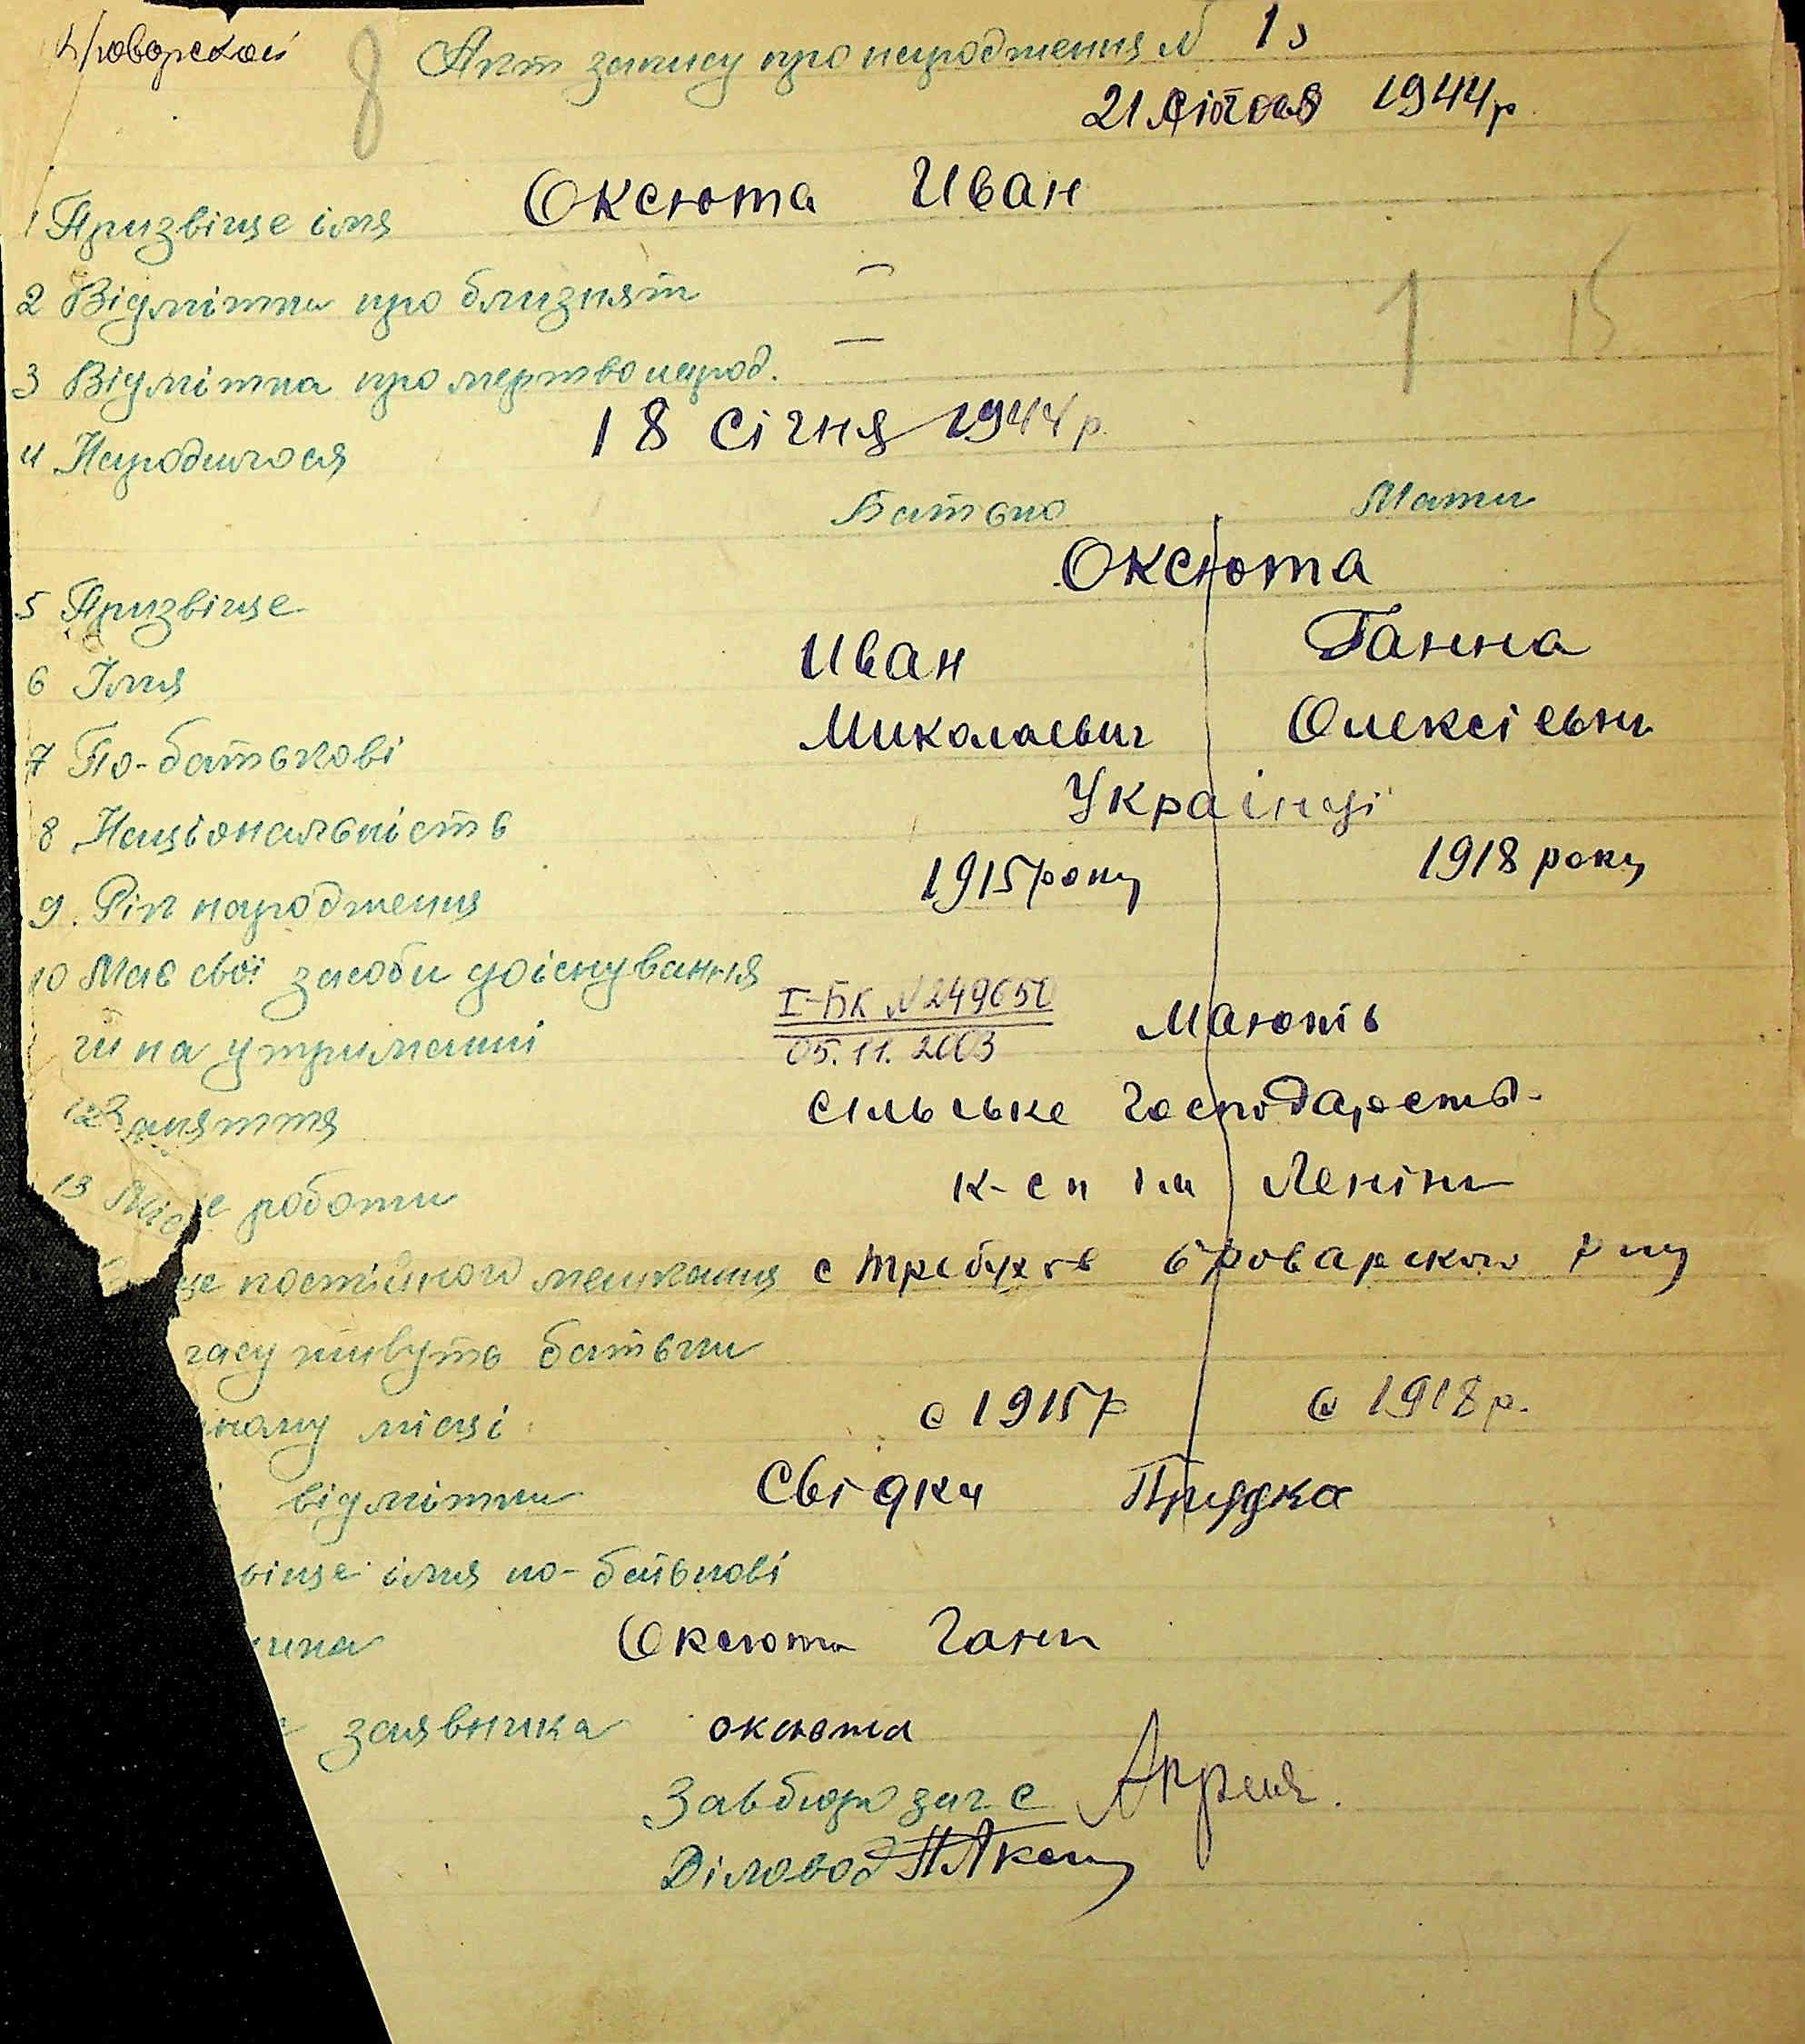 8 Акт запису про народження N 13
21 лютого 1944 р.
1 Призвіще імя Оксюта Иван
2 Відмітка про близнят —
1 15
3 Відмітка про мертвонарод. —
4 Народилося 18 Січня 1944 р.
Батько Мати
5 Призвіще Оксюта
6 Імя Иван Ганна
7 По-батькові Миколаевич Олексіевна
8 Національність Українці
9. Рік народження 1915 року 1918 року
10 Має свої засоби до існування
чи на утриманні І-БК N 249650 Мають
05.11.2003
12 Заняття сільське господарств-
13 Місце роботи к-сп ім Леніна
це постійного мешкання с Требухів Броварського р ну
часу живуть батьки
ному місці с 1915 р с 1918 р.
відмітки Свідки
віще імя по-батькові
Оксюта Ганна
заявника оксюта
Завбюро загс
Діловод